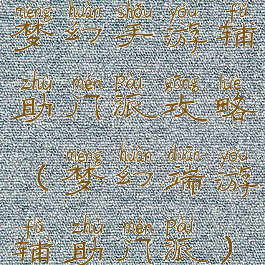 mèng huàn shǒu yóu fǔ
梦幻手游辅
zhù mén pài gōng lüè
助门派攻略
mèng huàn duān yóu
（梦幻端游
fǔ zhù mén pài
辅助门派）